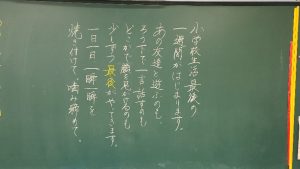 小学校生活最後の
一週間がはじまります。
あの友達と遊ぶのも、
そうして一言話すのも
どこかで勝ち見かるのも
少しずつ最後がやってきます。
一日一日一瞬一瞬を
焼き付けて、噛み締めて。